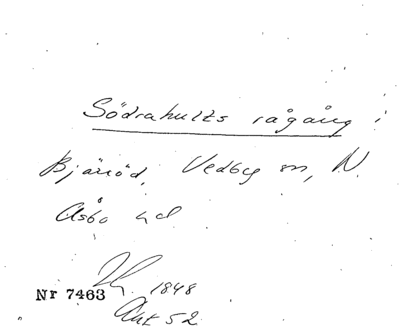 Södrahults rågång i
Bjärröd, Vedby sn, N.
Åsbo hd
1848
Nr 7463
Akt 52